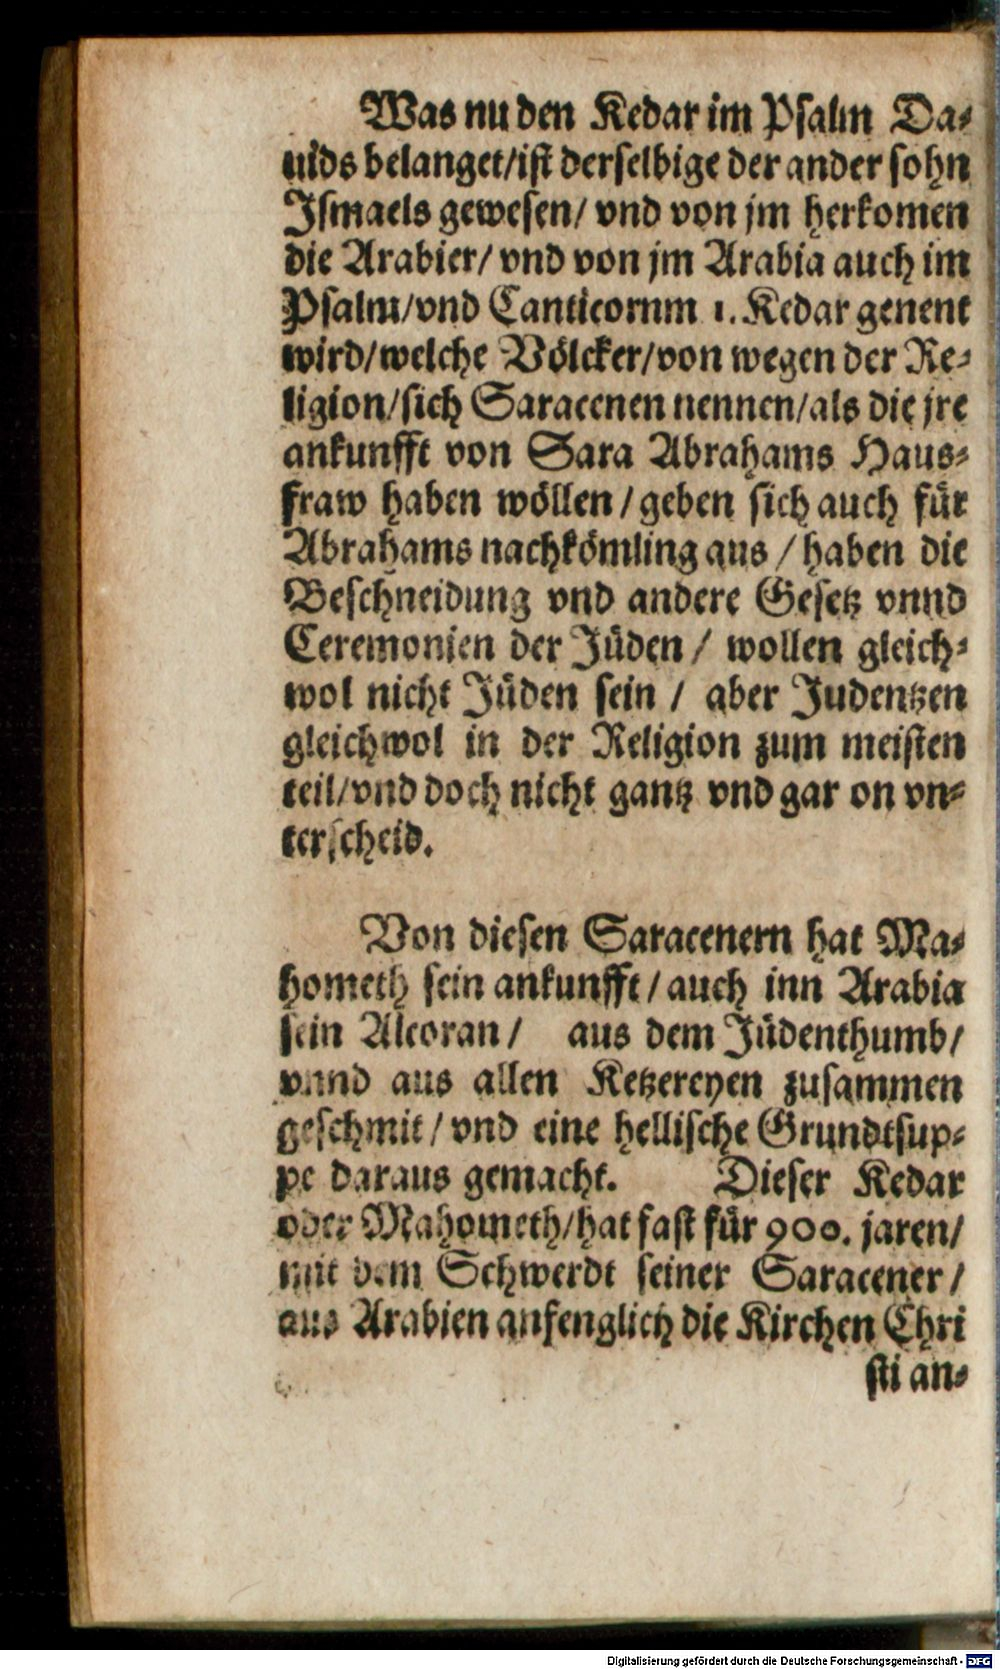 Was nu den Kedar im Psalm Da⸗
uids belanget/ist derselbige der ander sohn
Ismaels gewesen/ vnd von jm herkomen
die Arabier/ vnd von jm Arabia auch im
Psalm/vnd Canticorum 1. Kedar genent
wird/welche Völcker/von wegen der Re⸗
ligion/sich Saracenen nennen/als die jre
ankunfft von Sara Abrahams Haus⸗
fraw haben wöllen/geben sich auch für
Abrahams nachkömling aus/haben die
Beschneidung vnd andere Gesetz vnnd
Ceremonien der Jüden/ wollen gleich⸗
wol nicht Jüden sein / aber Judentzen
gleichwol in der Religion zum meisten
teil/vnd doch nicht gantz vnd gar on vn⸗
terscheid.
Von diesen Saracenern hat Ma⸗
hometh sein ankunfft/auch inn Arabia
sein Alcoran/ aus dem Jüdenthumb/
vnnd aus allen Ketzereyen zusammen
geschmit/vnd eine hellische Grundtsup⸗
pe daraus gemacht. Dieser Kedar
oder Mahometh/hat fast für 900. jaren/
mit dem Schwerdt seiner Saracener/
aus Arabien anfenglich die Kirchen Chri
sti an⸗
Digitalisierung gefördert durch die Deutsche Forschungsgemeinschaft - DFG